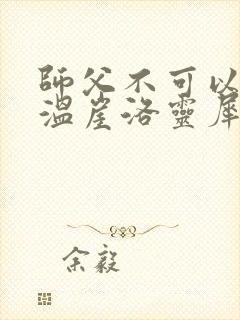 師父不可以
溫崖洛靈犀
余毅